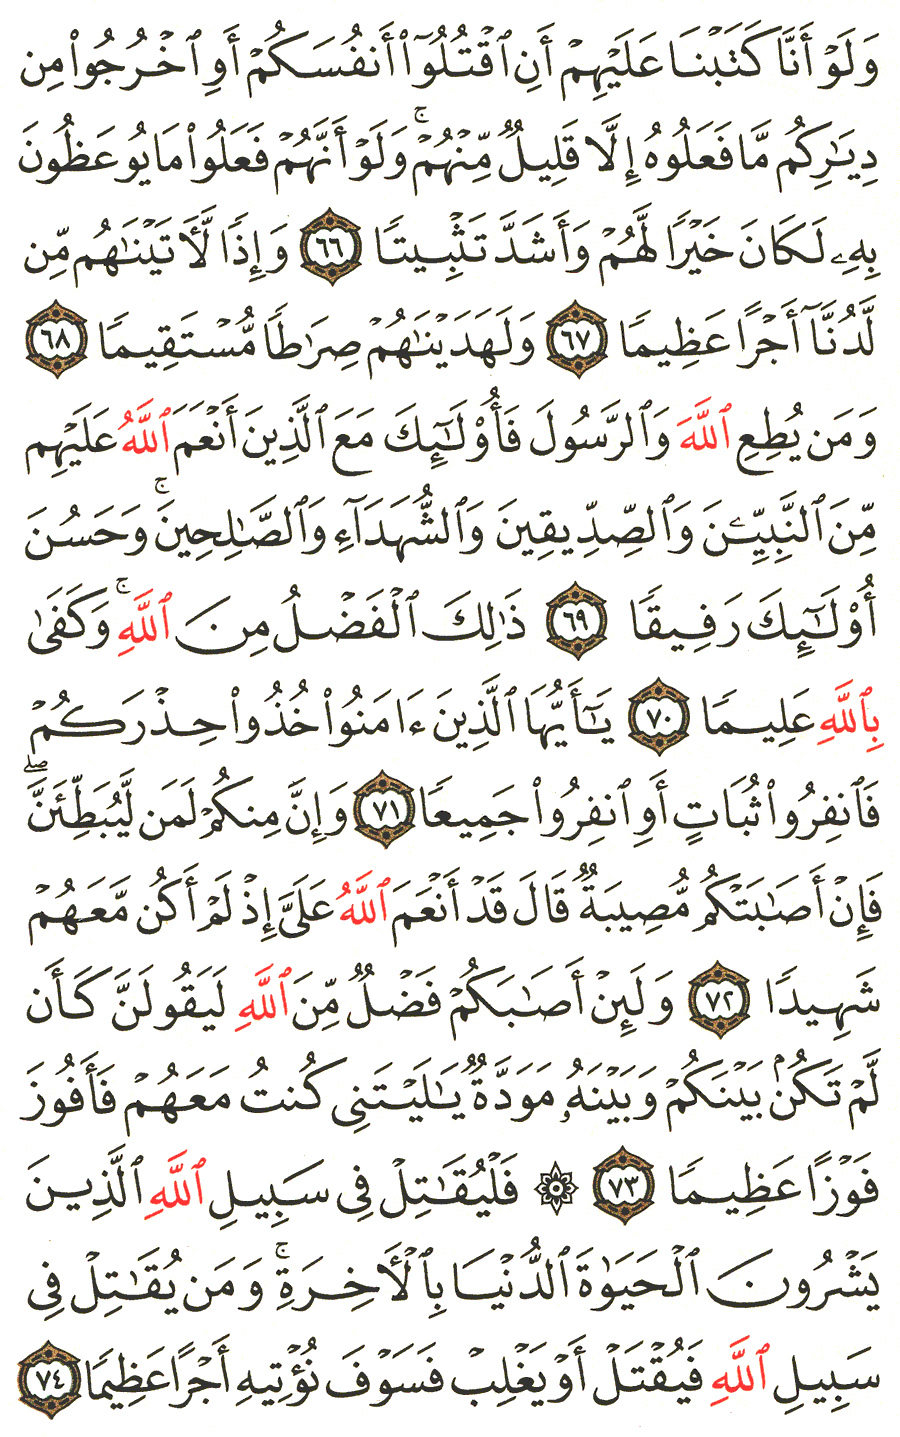 وَلَوْ أَنَّا كَتَبْنَا عَلَيْهِمْ أَنِ ٱقْتُلُوٓا۟ أَنفُسَكُمْ أَوِ ٱخْرُجُوا۟ مِن
دِيَٰرِكُم مَّا فَعَلُوهُ إِلَّا قَلِيلٌ مِّنْهُمْ ۖ وَلَوْ أَنَّهُمْ فَعَلُوا۟ مَا يُوعَظُونَ
بِهِۦ لَكَانَ خَيْرًا لَّهُمْ وَأَشَدَّ تَثْبِيتًا ٦٦ وَإِذًا لَّـَٔاتَيْنَٰهُم مِّن
لَّدُنَّآ أَجْرًا عَظِيمًا ٦٧ وَلَهَدَيْنَٰهُمْ صِرَٰطًا مُّسْتَقِيمًا ٦٨
وَمَن يُطِعِ ٱللَّهَ وَٱلرَّسُولَ فَأُو۟لَٰٓئِكَ مَعَ ٱلَّذِينَ أَنْعَمَ ٱللَّهُ عَلَيْهِم
مِّنَ ٱلنَّبِيِّـۧنَ وَٱلصِّدِّيقِينَ وَٱلشُّهَدَآءِ وَٱلصَّٰلِحِينَ ۚ وَحَسُنَ
أُو۟لَٰٓئِكَ رَفِيقًا ٦٩ ذَٰلِكَ ٱلْفَضْلُ مِنَ ٱللَّهِ ۚ وَكَفَىٰ
بِٱللَّهِ عَلِيمًا ٧٠ يَٰٓأَيُّهَا ٱلَّذِينَ ءَامَنُوا۟ خُذُوا۟ حِذْرَكُمْ
فَٱنفِرُوا۟ ثُبَاتٍ أَوِ ٱنفِرُوا۟ جَمِيعًا ٧١ وَإِنَّ مِنكُمْ لَمَن لَّيُبَطِّئَنَّ ۖ
فَإِنْ أَصَٰبَتْكُم مُّصِيبَةٌ قَالَ قَدْ أَنْعَمَ ٱللَّهُ عَلَىَّ إِذْ لَمْ أَكُن مَّعَهُمْ
شَهِيدًا ٧٢ وَلَئِنْ أَصَٰبَكُمْ فَضْلٌ مِّنَ ٱللَّهِ لَيَقُولَنَّ كَأَن
لَّمْ تَكُنۢ بَيْنَكُمْ وَبَيْنَهُۥ مَوَدَّةٌ يَٰلَيْتَنِى كُنتُ مَعَهُمْ فَأَفُوزَ
فَوْزًا عَظِيمًا ٧٣ ۞ فَلْيُقَٰتِلْ فِى سَبِيلِ ٱللَّهِ ٱلَّذِينَ
يَشْرُونَ ٱلْحَيَوٰةَ ٱلدُّنْيَا بِٱلْـَٔاخِرَةِ ۚ وَمَن يُقَٰتِلْ فِى
سَبِيلِ ٱللَّهِ فَيُقْتَلْ أَوْ يَغْلِبْ فَسَوْفَ نُؤْتِيهِ أَجْرًا عَظِيمًا ٧٤